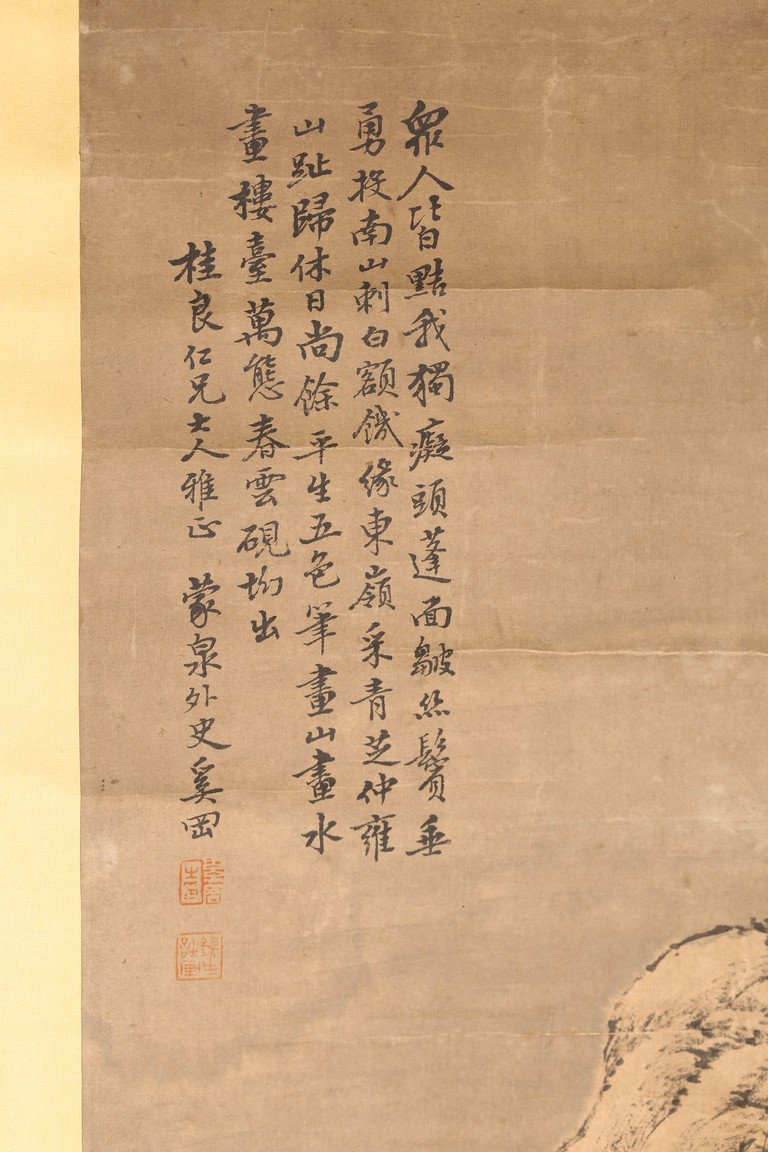 衆人皆黠我獨癡頭蓬面皺絲鬢垂
勇投南山刺白額饑緣東嶺采青芝仲雍
山趾歸休日尚餘平生五色筆畫山畫水
畫樓臺萬態春雲硯坳出
桂良仁兄大人雅正 蒙泉外史奚岡